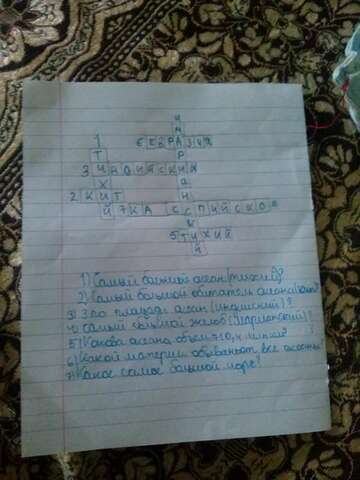 М
А
1 6 Е В Р А З И Я
Т Р
3 И Н Д И Й С К И Й
Х А
2 К И Т Н
Й 7 К А С П И Й С К О Е
К
5 Т И Х И Й
Й
1) Самый большой океан (тихий)?
2) Самый большой обитатель океана (кит)?
3) 3 по площади океан (индийский)?
4) Самый большой жолоб (Мариански)?
5) Какова океана объем 710,4 млн км³
6) Какой материк обмывают все океаны?
7) Какое самое большой море?